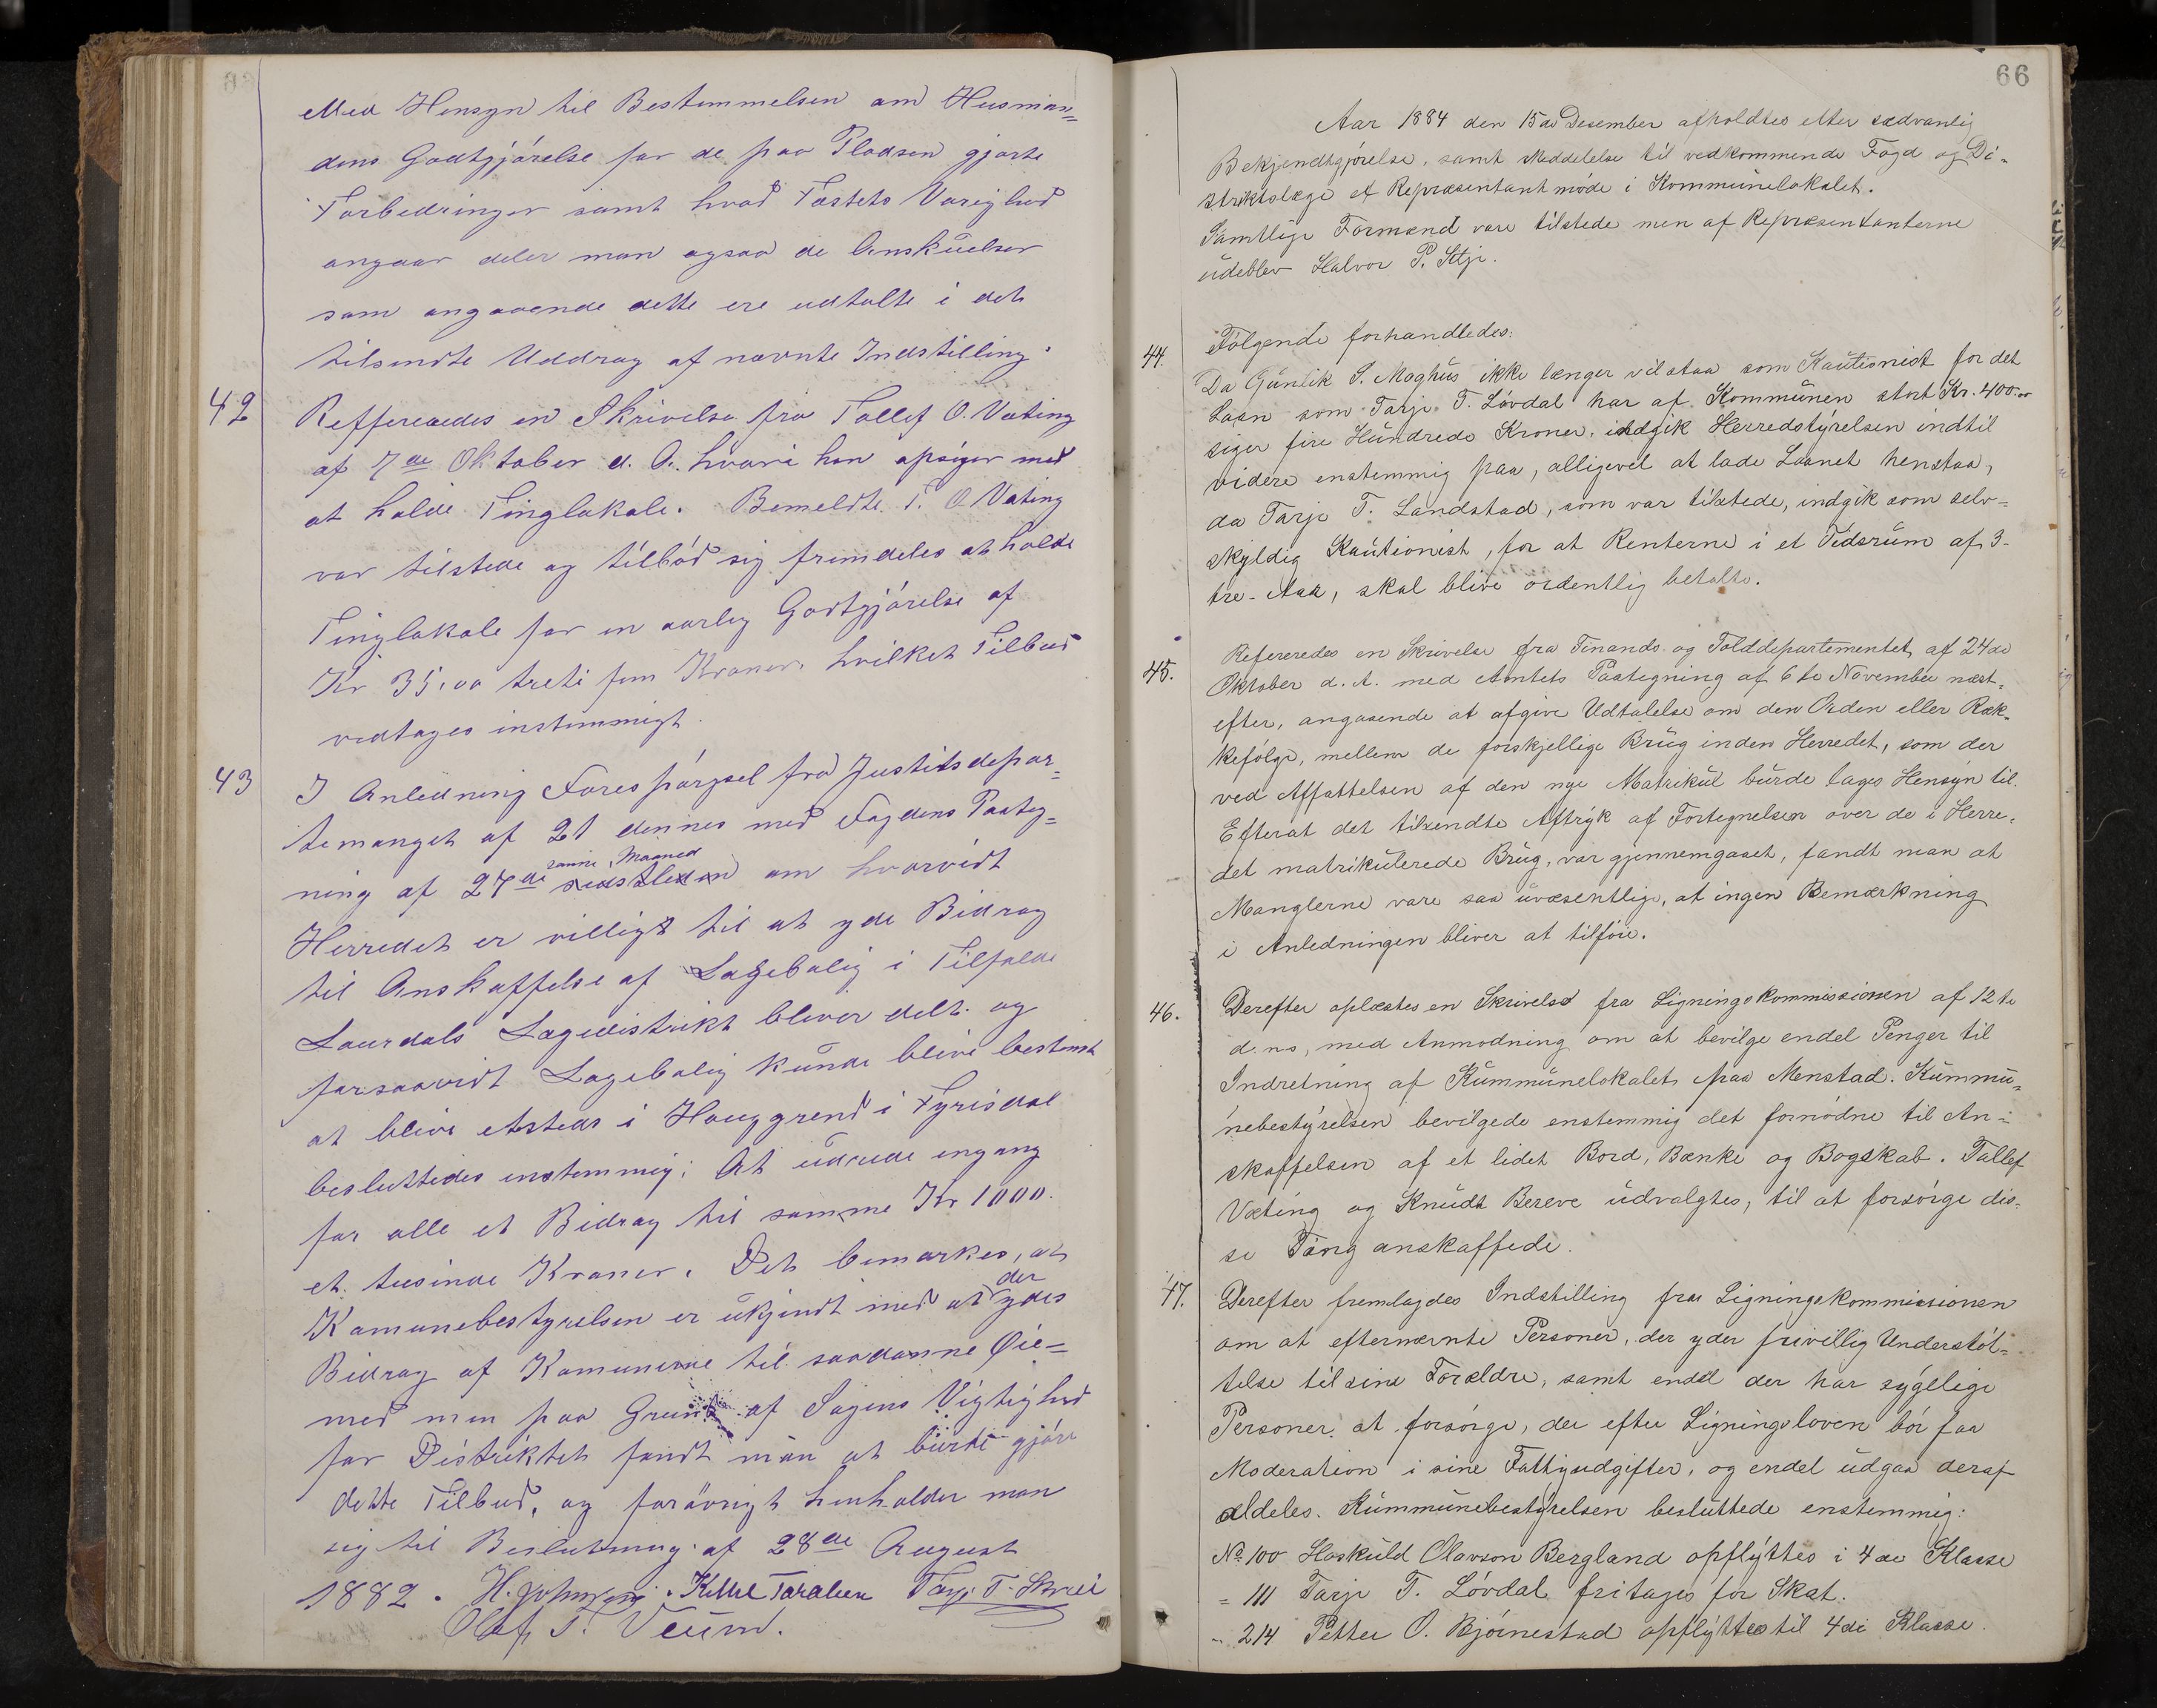 Med Hensyn til Bestemmelsen om Husman=
dens Godtgjörelse for de paa Pladsen gjorte
Forbedringer samt hvad Fæstets Varighed
angaar deler man ogsaa de Anskuelser
som angaaende dette ere udtalte i det
tilsendte Uddrag af nævnte Indstilling.
42
Reffereredes en Skrivelse fra Tallef O. Væting
af 7de Oktober d. A. hvori han opsiger med
at holde Tinglokale. Bemeldte T. O Væting
var tilstede og tilbød sig fremdeles at holde
Tinglokale for en aarlig Godtgjörelse af
Kr 35,00 treti fem Kroner. hvilket Tilbud
vedtages enstemmigt.
43
I Anledning Forespörgsel fra Justitsdepar=
temanget af 21 dennes med Fogdens Paateg=
ning af 27de sidstleden samme Maaned om hvorvidt
Herredet er villigt til at yde Bidrag
til Anskaffelse af Lægebolig i Tilfælde
Laurdals Lægedistrikt bliver delt. og
forsaavidt Lægebolig kunde blive bestemt
at blive etsteds i Hauggrend i Fyrisdal
besluttedes enstemmig: At udrede engang
for alle et Bidrag til samme Kr 1000.
et tusinde Kroner. Det bemærkes, at
Komunebestyrelsen er ukjendt med at der ydes
Bidrag af Komunerne til saadanne Øie=
med men paa Grund af Sagens Vigtighed
for Distriktet fandt man at burde gjöre
dette Tilbud, og forövrigt henholder man
sig til Beslutning af 28de August
1882. H. Johnsen. Kittel Taraldsen Tarje T. Skrei
Olaf T. Veum.
66
Aar 1884 den 15de Desember afholdtes efter sædvanlig
Bekjendtgjörelse, samt Meddelelse til vedkommende Fogd og Di=
striktslæge et Repræsentantmöde i Kommunelokalet.
Samtlige Formænd vare tilstede men af Repræsentanterne
udeblev Halvor P. Itje.
Fölgende forhandledes:
44.
Da Gunlik S. Moghus ikke længer vil staa som Kautionist for det
Laan som Tarje T. Lövdal har af Kommunen stort Kr. 400.00
siger fire Hundrede Kroner, indgik Herredstyrelsen indtil
videre enstemmig paa, alligevel at lade Laanet henstaa,
da Tarje T. Landstad, som var tilstede, indgik som selv=
skyldig Kautionist, for at Renterne i et Tidsrum af 3-
tre- Aar, skal blive ordentlig betalte.
45.
Refereredes en Skrivelse fra Finands og Tolddepartementet af 24de
Oktober d. A. med Amtets Paategning af 6te November næst=
efter, angaaende at afgive Udtalelse om den Orden eller Ræk=
kefölge, mellem de forskjellige Brug inden Herredet, som der
ved Affattelsen af den nye Matrikul burde tages Hensyn til.
Efterat det tilsendte Aftryk af Fortegnelsen over de i Herre=
det matrikulerede Brug, var gjennemgaaet, fandt man at
Manglerne vare saa uvæsentlige, at ingen Bemærkning
i Anledningen bliver at tilföie.
46.
Derefter oplæstes en Skrivelse fra Ligningskommissionen af 12te
d. ns, med Anmodning om at bevilge endel Penger til
Indretning af Kummunelokalet paa Menstad. Kummu=
nebestyrelsen bevilgede enstemmig det fornödne til An=
skaffelsen af et lidet Bord, Bænke og Bogskab. Tallef
Væting og Knudt Bereve udvalgtes, til at forsörge dis=
se Ting anskaffede.
47.
Derefter fremlagdes Indstilling fra Ligningskommissionen
om at efternævnte Personer, der yder frivillig Understöt=
telse til sine Forældre, samt endel der har sygelige
Personer at forsörge, der efter Ligningsloven bör faa
Moderation i sine Fattigudgifter, og endel udgaa deraf
aldeles. Kummunebestyrelsen besluttede enstemmig:
No 100 Hoskuld Olavson Bergland opflyttes i 4de Klasse
= 111 Tarje T. Lövdal fritages for Skat.
= 214 Petter O. Björnestad opflyttes til 4de Klasse.